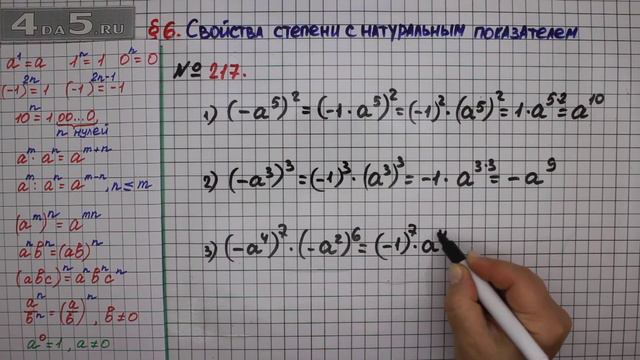 4DA5.RU
§ 6. Свойства степени с натуральным показателем
a¹ = a 1ⁿ = 1 0ⁿ = 0
(-1)²ⁿ = 1 (-1)²ⁿ⁻¹ = -1
10ⁿ = 1 00...0,
n нулей
aᵐ · aⁿ = aᵐ⁺ⁿ
aᵐ : aⁿ = aᵐ⁻ⁿ, n ≤ m
(aᵐ)ⁿ = aᵐⁿ
aⁿbⁿ = (ab)ⁿ
(abc)ⁿ = aⁿbⁿcⁿ
aⁿ/bⁿ = (a/b)ⁿ, b ≠ 0
a⁰ = 1, a ≠ 0
№ 217.
1) (-a⁵)² = (-1 · a⁵)² = (-1)² · (a⁵)² = 1 · a⁵·² = a¹⁰
2) (-a³)³ = (-1)³ · (a³)³ = -1 · a³·³ = -a⁹
3) (-a⁴)⁷ · (-a²)⁶ = (-1)⁷ · a⁴